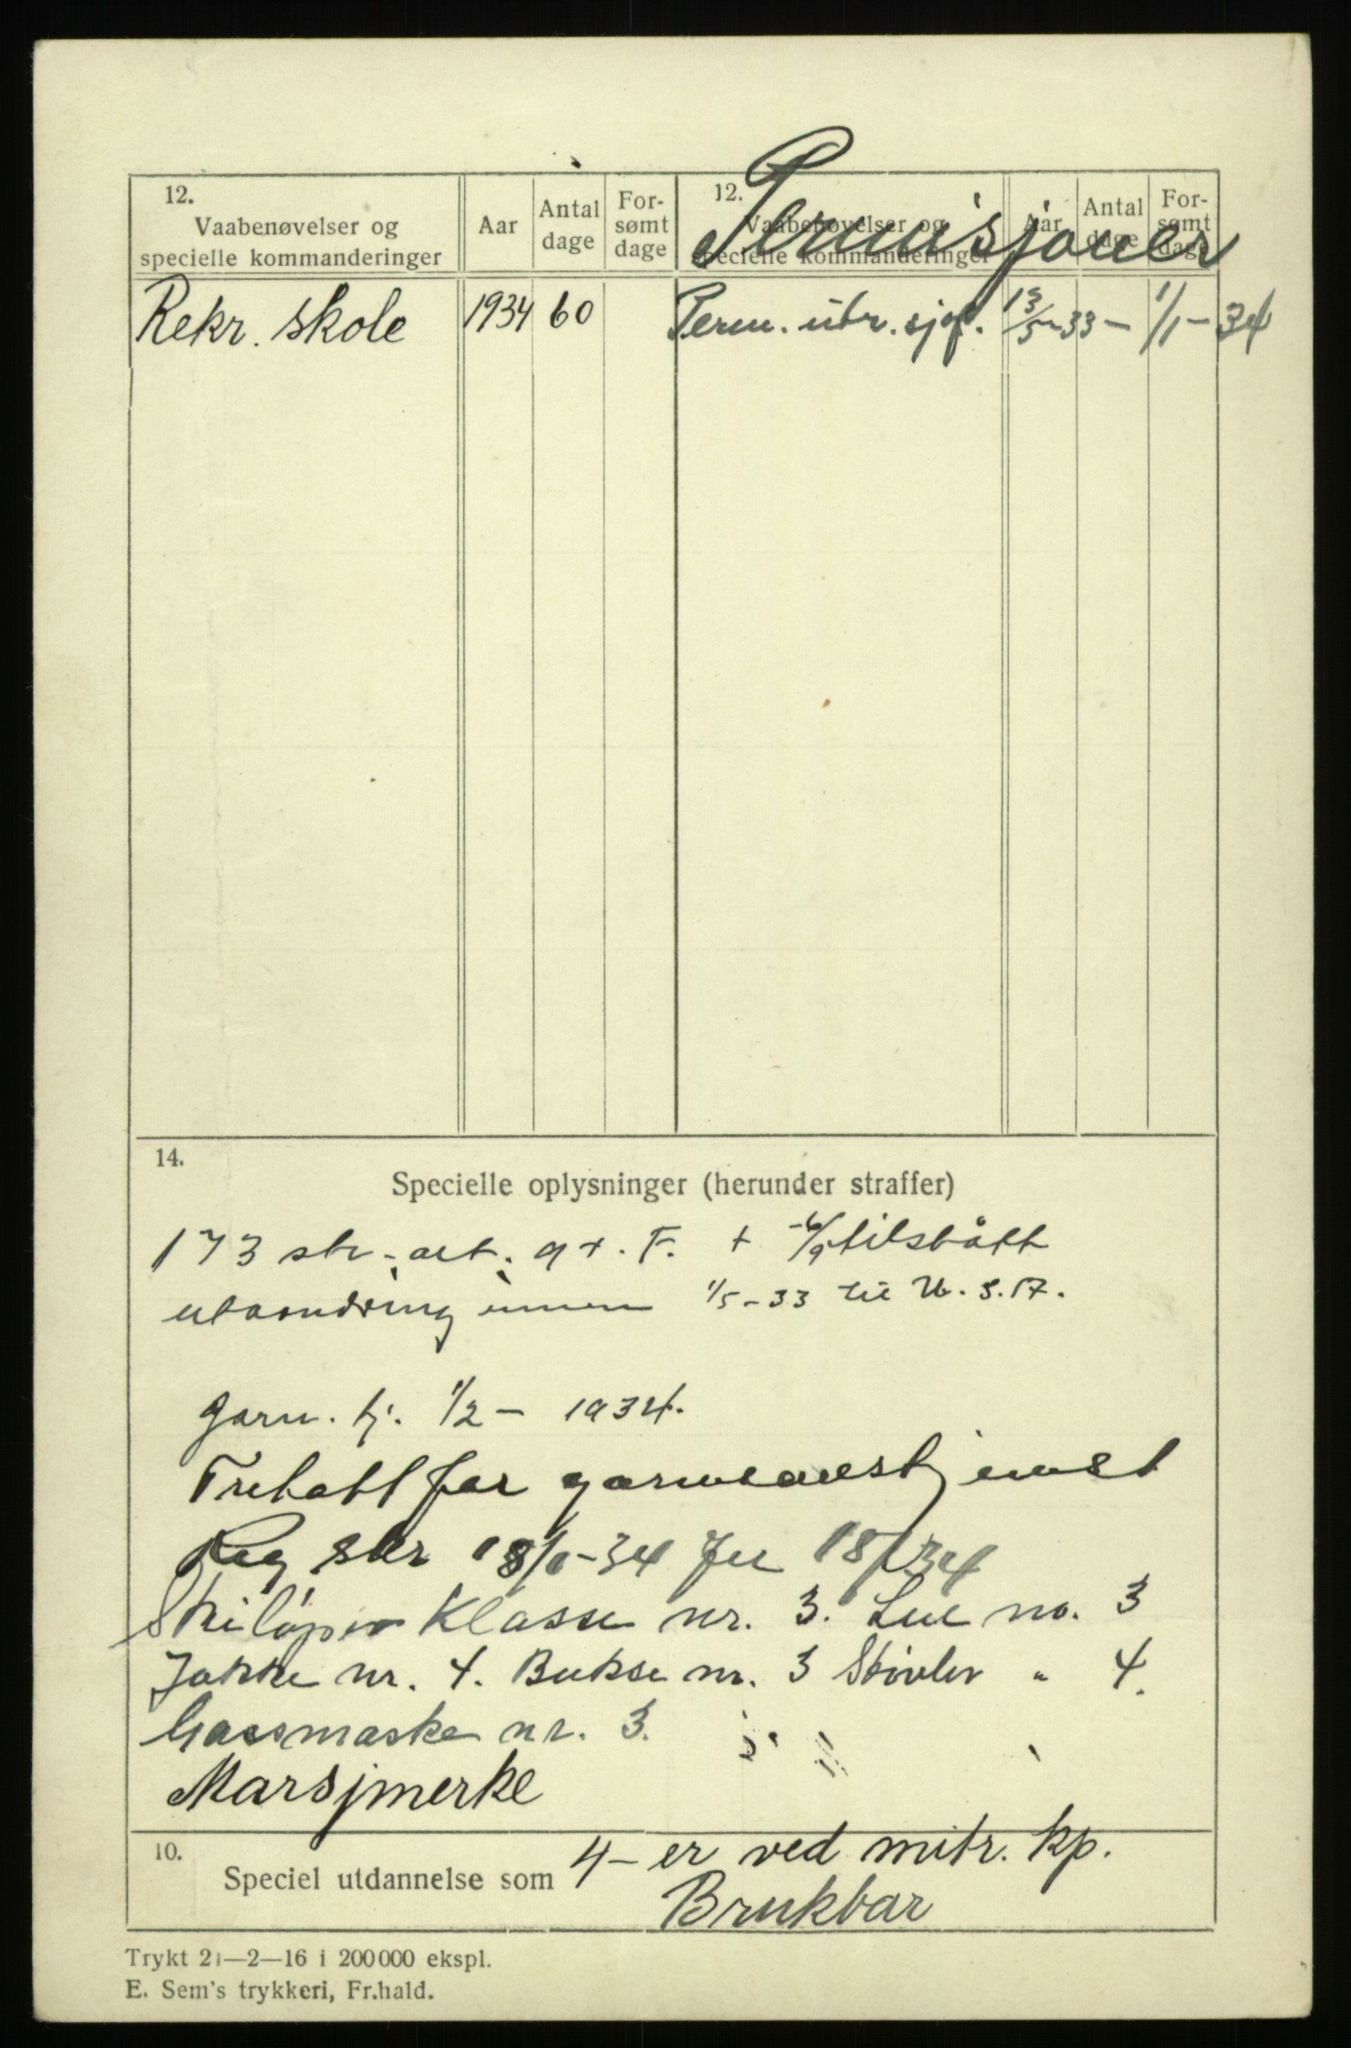 Permisjoner
12.
Vaabenøvelser og
specielle kommanderinger
Aar
Antal
dage
For-
sømt
dage
12.
Vaabenøvelser og
specielle kommanderinger
Aar
Antal
dage
For-
sømt
dage
Rekr. skole 1934 60
Perm. utr. sjøf. 13/5-33 - 1/1-34
14.
Specielle oplysninger (herunder straffer)
173 skr. F. + 6/9 tilstått
utvandring innen 1/5-33 til U.S.A.
garn. tj. 1/2 - 1934.
Fritatt for garnisonstjenest
Reg skr 18/1-34
Skiløper Klasse nr. 3. Lue no. 3
Jakke nr. 4. Bukse nr. 3 Støvler " 4.
Gassmaske nr. 3.
Marsjmerke
10.
Speciel utdannelse som 4-er ved mitr. kp.
Brukbar
Trykt 21—2—16 i 200000 ekspl.
E. Sem's trykkeri, Fr.hald.